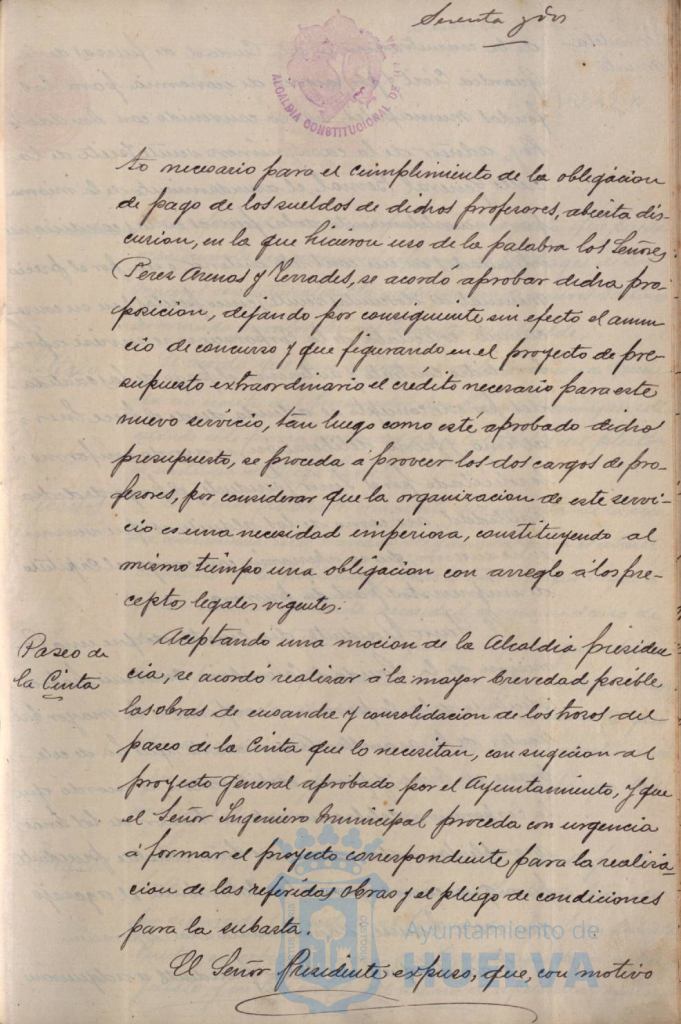 Sesenta y dos
ALCALDIA CONSTITUCIONAL DE
to necesario para el cumplimiento de la obligacion
de pago de los sueldos de dichos profesores, abierta dis-
cusion, en la que hicieron uso de la palabra los Señores
Perez Arenas y Terrades, se acordó aprobar dicha pro-
posicion, dejando por consiguiente sin efecto el anun-
cio de concurso y que figurando en el proyecto de pre-
supuesto extraordinario el crédito necesario para este
nuevo servicio, tan luego como esté aprobado dicho
presupuesto, se proceda á proveer los dos cargos de pro-
fesores, por considerar que la organizacion de este servi-
cio es una necesidad imperiosa, constituyendo al
mismo tiempo una obligacion con arreglo á los pre-
ceptos legales vigentes.
Paseo de
la Cinta
Aceptando una mocion de la Alcaldia presiden
cia, se acordó realizar á la mayor brevedad posible
las obras de ensanche y consolidacion de los trozos del
paseo de la Cinta que lo necesitan, con sugecion al
proyecto general aprobado por el Ayuntamiento, y que
el Señor Ingeniero Municipal proceda con urgencia
á formar el proyecto correspondiente para la realiza-
cion de las referidas obras y el pliego de condiciones
para la subasta.
El Señor Presidente expuso, que, con motivo
Ayuntamiento de
HUELVA